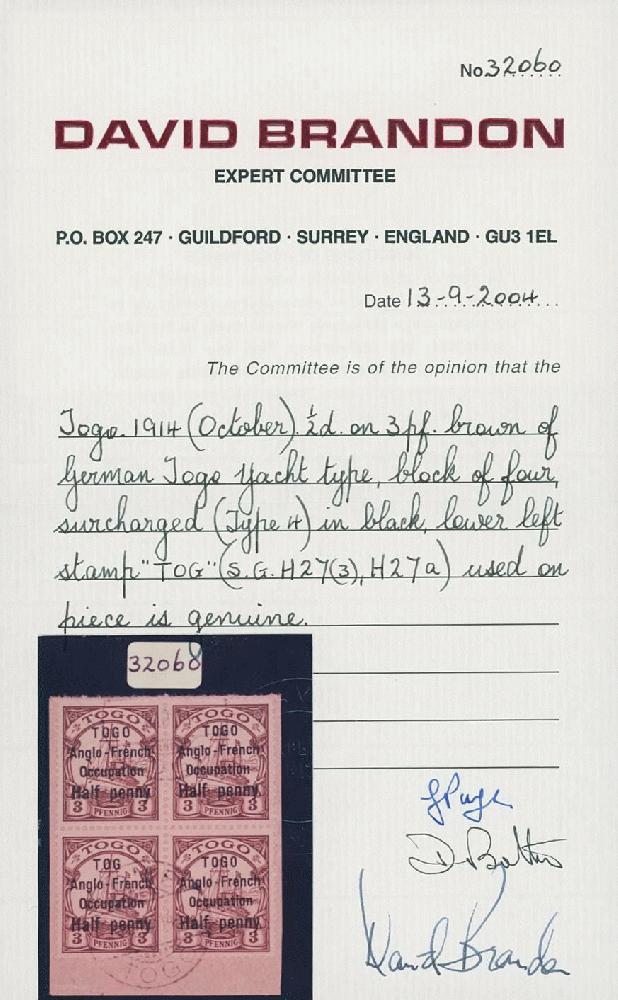 No 32060
DAVID BRANDON
EXPERT COMMITTEE
P.O. BOX 247 · GUILDFORD · SURREY · ENGLAND · GU3 1EL
Date 13-9-2004
The Committee is of the opinion that the
Togo. 1914 (October) ½d. on 3pf. brown of
German Togo Yacht type, block of four,
surcharged (Type 4) in black, lower left
stamp "TOG" (S.G. H27(3), H27a) used on
piece is genuine.
32060
TOGO TOGO
TOGO TOGO
Anglo-French Anglo-French
Occupation Occupation
Half penny Half penny
3 PFENNIG 3 3 PFENNIG 3
TOGO TOGO
TOG TOGO
Anglo-French Anglo-French
Occupation Occupation
Half penny Half penny
3 PFENNIG 3 3 PFENNIG 3
TOGO
David Brandon